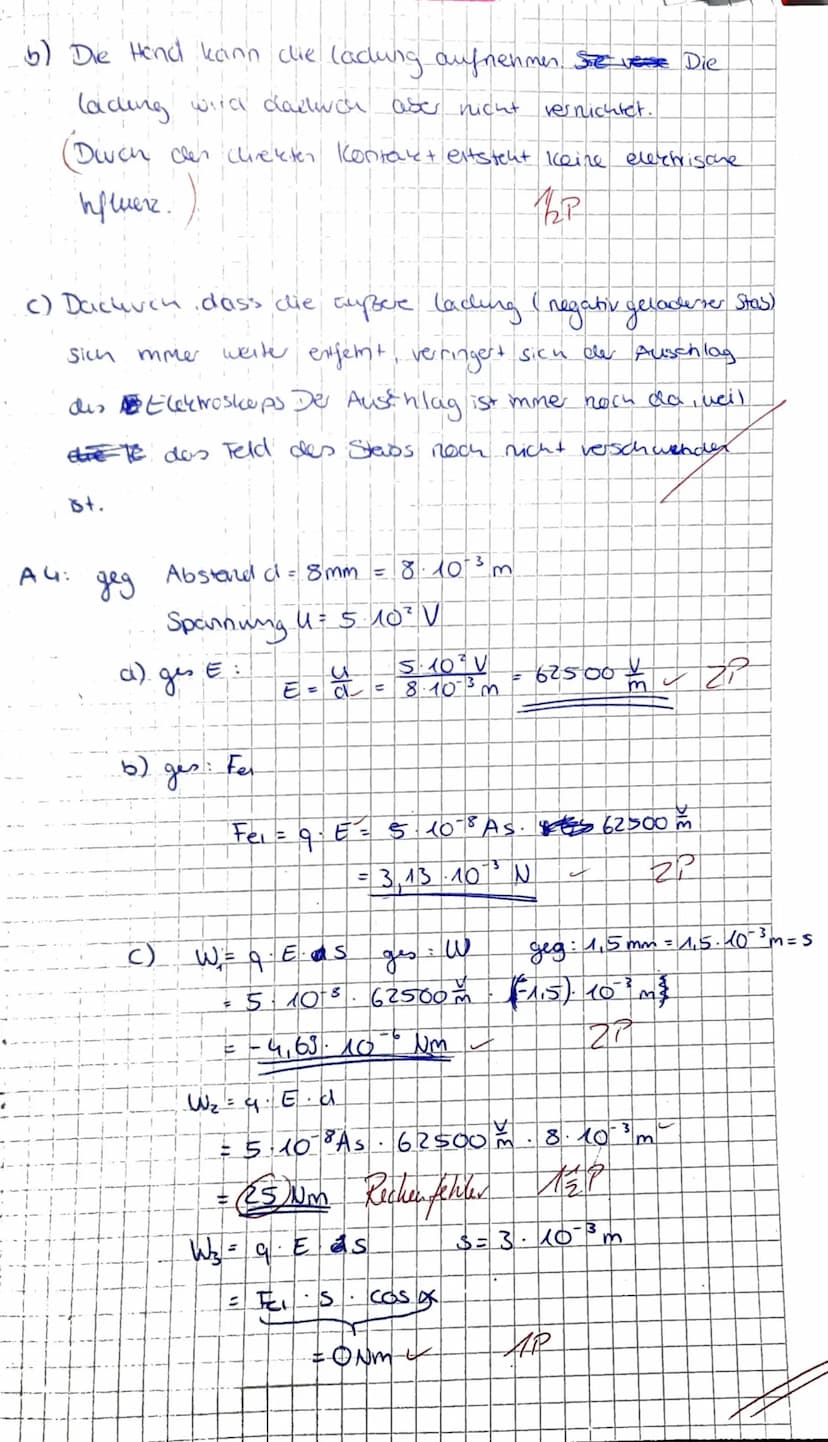 b) Die Hand kann die Ladung aufnehmen. Die
Ladung wird dadurch aber nicht vernichtet.
(Durch den direkten Kontakt entsteht keine elektrische
Influenz.)
½P
c) Dadurch, dass die äußere Ladung (negativ geladener Stab)
sich immer weiter entfernt, verringert sich der Auschlag
des Elektroskops Der Ausschlag ist immer noch da, weil
das Feld des Stabs noch nicht verschwunden
ist.
A4: geg Abstand d = 8mm = 8·10⁻³ m
Spannung U = 5·10² V
a) ges E: E = U/d = 5·10² V / 8·10⁻³ m = 62500 V/m ✓ 2P
b) ges: Fel
Fel = q · E = 5·10⁻⁸ As · 62500 V/m
= 3,13 · 10⁻³ N ✓ 2P
c) W₁ = q · E · s ges: W geg: 1,5 mm = 1,5·10⁻³ m = s
= 5·10⁻⁸ · 62500 V/m · (-1,5) · 10⁻³ m
= -4,69 · 10⁻⁶ Nm ✓ 2P
W₂ = q · E · d
= 5·10⁻⁸ As · 62500 V/m · 8·10⁻³ m ✓
= 25 Nm Rechenfehler 1½P
W₃ = q · E · s s = 3·10⁻³ m
= Fel · s · cos α
= 0 Nm ✓ 1P